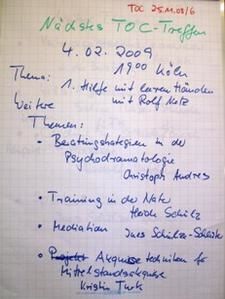 TOC 25.11.08/6
Nächstes TOC-Treffen
4.02.2009
19⁰⁰ Köln
Thema:
1. Hilfe mit leeren Händen
mit Rolf Netz
Weitere
Themen:
• Beratungsstrategien in der
Psychodramatologie
Christoph Andres
• Training in der Natur
Heide Schülz
• Mediation Ines Schulze-Schlüter
• Projekt Akquisetechniken für
Mittelstandsakquise
Kristin Turk